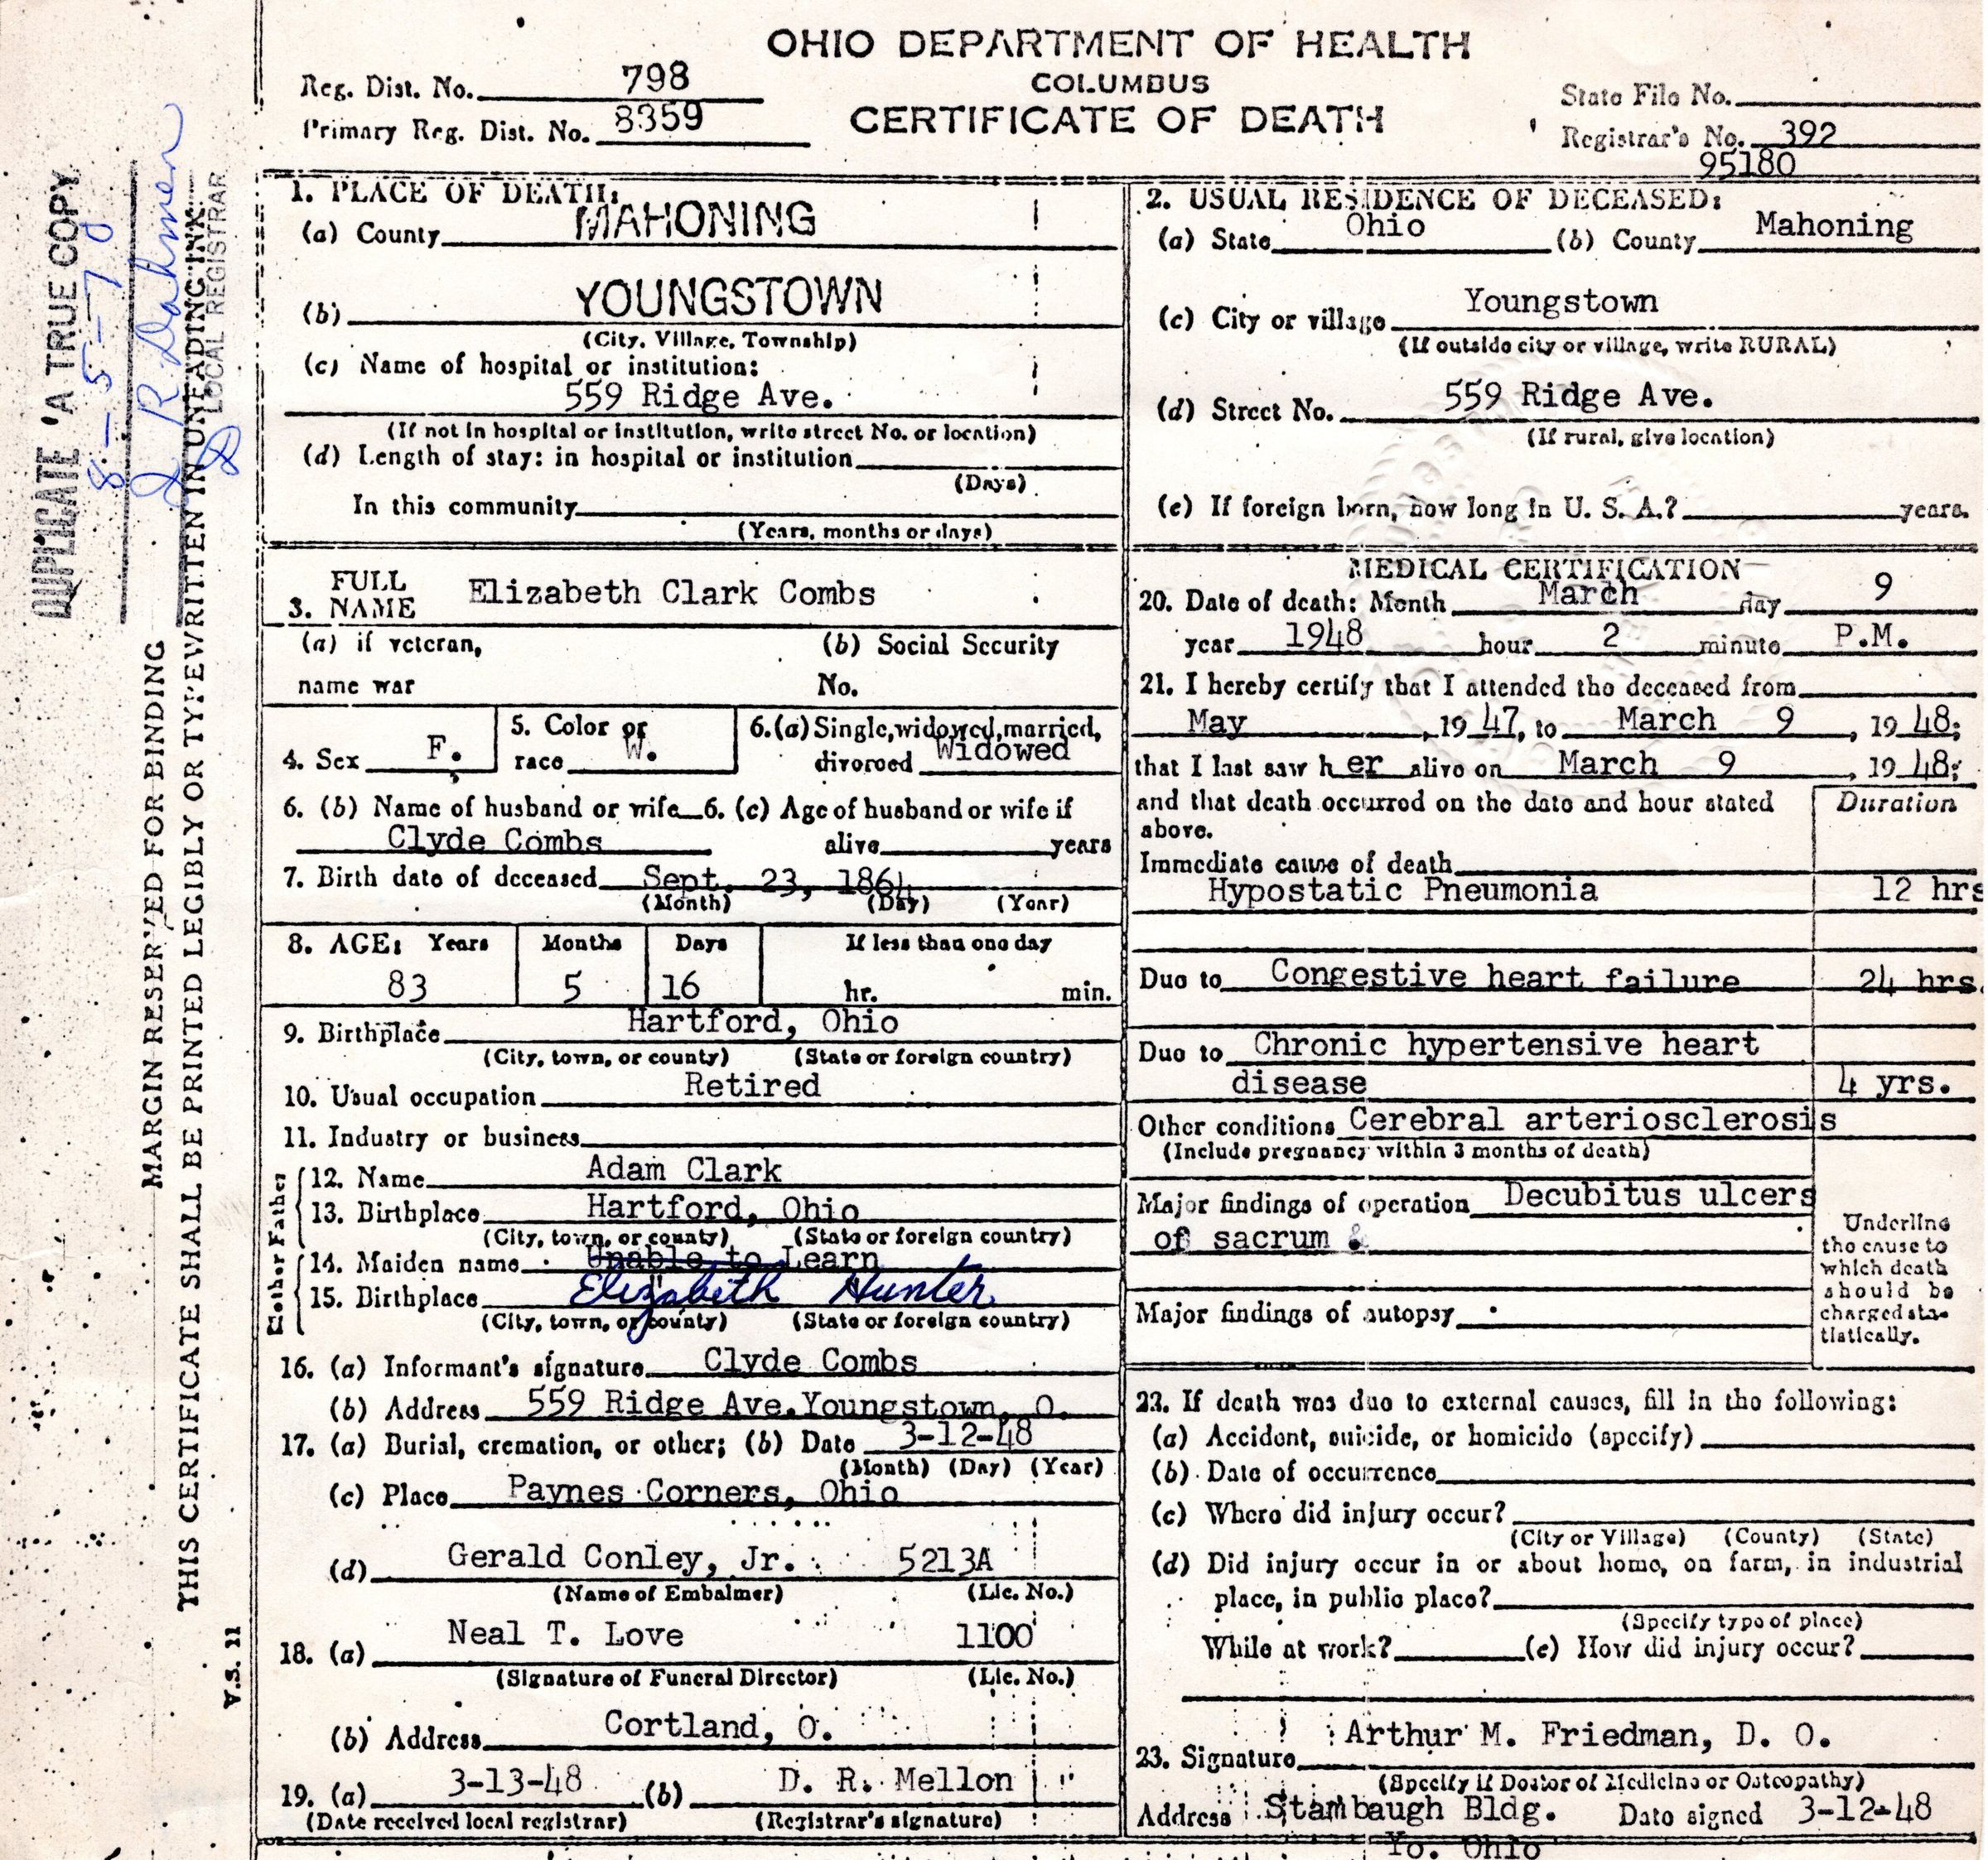 OHIO DEPARTMENT OF HEALTH
COLUMBUS
CERTIFICATE OF DEATH
Reg. Dist. No. 798
Primary Reg. Dist. No. 8359
State File No.
Registrar's No. 392
95180
1. PLACE OF DEATH:
(a) County MAHONING
(b) YOUNGSTOWN
(City, Village, Township)
(c) Name of hospital or institution:
559 Ridge Ave.
(If not in hospital or institution, write street No. or location)
(d) Length of stay: in hospital or institution
(Days)
In this community
(Years, months or days)
2. USUAL RESIDENCE OF DECEASED:
(a) State Ohio (b) County Mahoning
(c) City or village Youngstown
(If outside city or village, write RURAL)
(d) Street No. 559 Ridge Ave.
(If rural, give location)
(e) If foreign born, how long in U. S. A.? years.
3. FULL NAME Elizabeth Clark Combs
(a) if veteran, name war
(b) Social Security No.
4. Sex F.
5. Color or race W.
6.(a) Single, widowed, married, divorced Widowed
6. (b) Name of husband or wife Clyde Combs
6. (c) Age of husband or wife if alive years
7. Birth date of deceased Sept. 23, 1864
(Month) (Day) (Year)
8. AGE: Years Months Days If less than one day
83 5 16 hr. min.
9. Birthplace Hartford, Ohio
(City, town, or county) (State or foreign country)
10. Usual occupation Retired
11. Industry or business
Father
12. Name Adam Clark
13. Birthplace Hartford, Ohio
(City, town, or county) (State or foreign country)
Mother
14. Maiden name Unable to Learn
Elizabeth Hunter
15. Birthplace "
(City, town, or county) (State or foreign country)
16. (a) Informant's signature Clyde Combs
(b) Address 559 Ridge Ave. Youngstown, O.
17. (a) Burial, cremation, or other; (b) Date 3-12-48
(Month) (Day) (Year)
(c) Place Paynes Corners, Ohio
(d) Gerald Conley, Jr. 5213A
(Name of Embalmer) (Lic. No.)
18. (a) Neal T. Love 1100
(Signature of Funeral Director) (Lic. No.)
(b) Address Cortland, O.
19. (a) 3-13-48 (b) D. R. Mellon
(Date received local registrar) (Registrar's signature)
MEDICAL CERTIFICATION
20. Date of death: Month March day 9
year 1948 hour 2 minute P.M.
21. I hereby certify that I attended the deceased from
May, 19 47, to March 9, 19 48;
that I last saw h er alive on March 9, 19 48;
and that death occurred on the date and hour stated above.
Duration
Immediate cause of death
Hypostatic Pneumonia 12 hrs
Due to Congestive heart failure 24 hrs.
Due to Chronic hypertensive heart
disease 4 yrs.
Other conditions Cerebral arteriosclerosis
(Include pregnancy within 3 months of death)
Major findings of operation Decubitus ulcers
of sacrum &
Major findings of autopsy
Underline the cause to which death should be charged statistically.
22. If death was due to external causes, fill in the following:
(a) Accident, suicide, or homicide (specify)
(b) Date of occurrence
(c) Where did injury occur?
(City or Village) (County) (State)
(d) Did injury occur in or about home, on farm, in industrial
place, in public place?
(Specify type of place)
While at work? (e) How did injury occur?
23. Signature Arthur M. Friedman, D. O.
(Specify if Doctor of Medicine or Osteopathy)
Address Stambaugh Bldg. Date signed 3-12-48
Yo. Ohio
DUPLICATE 'A TRUE COPY
8-5-78
R Dahmen
LOCAL REGISTRAR
MARGIN RESERVED FOR BINDING
THIS CERTIFICATE SHALL BE PRINTED LEGIBLY OR TYPEWRITTEN IN UNFADING INK.
V.S. 11